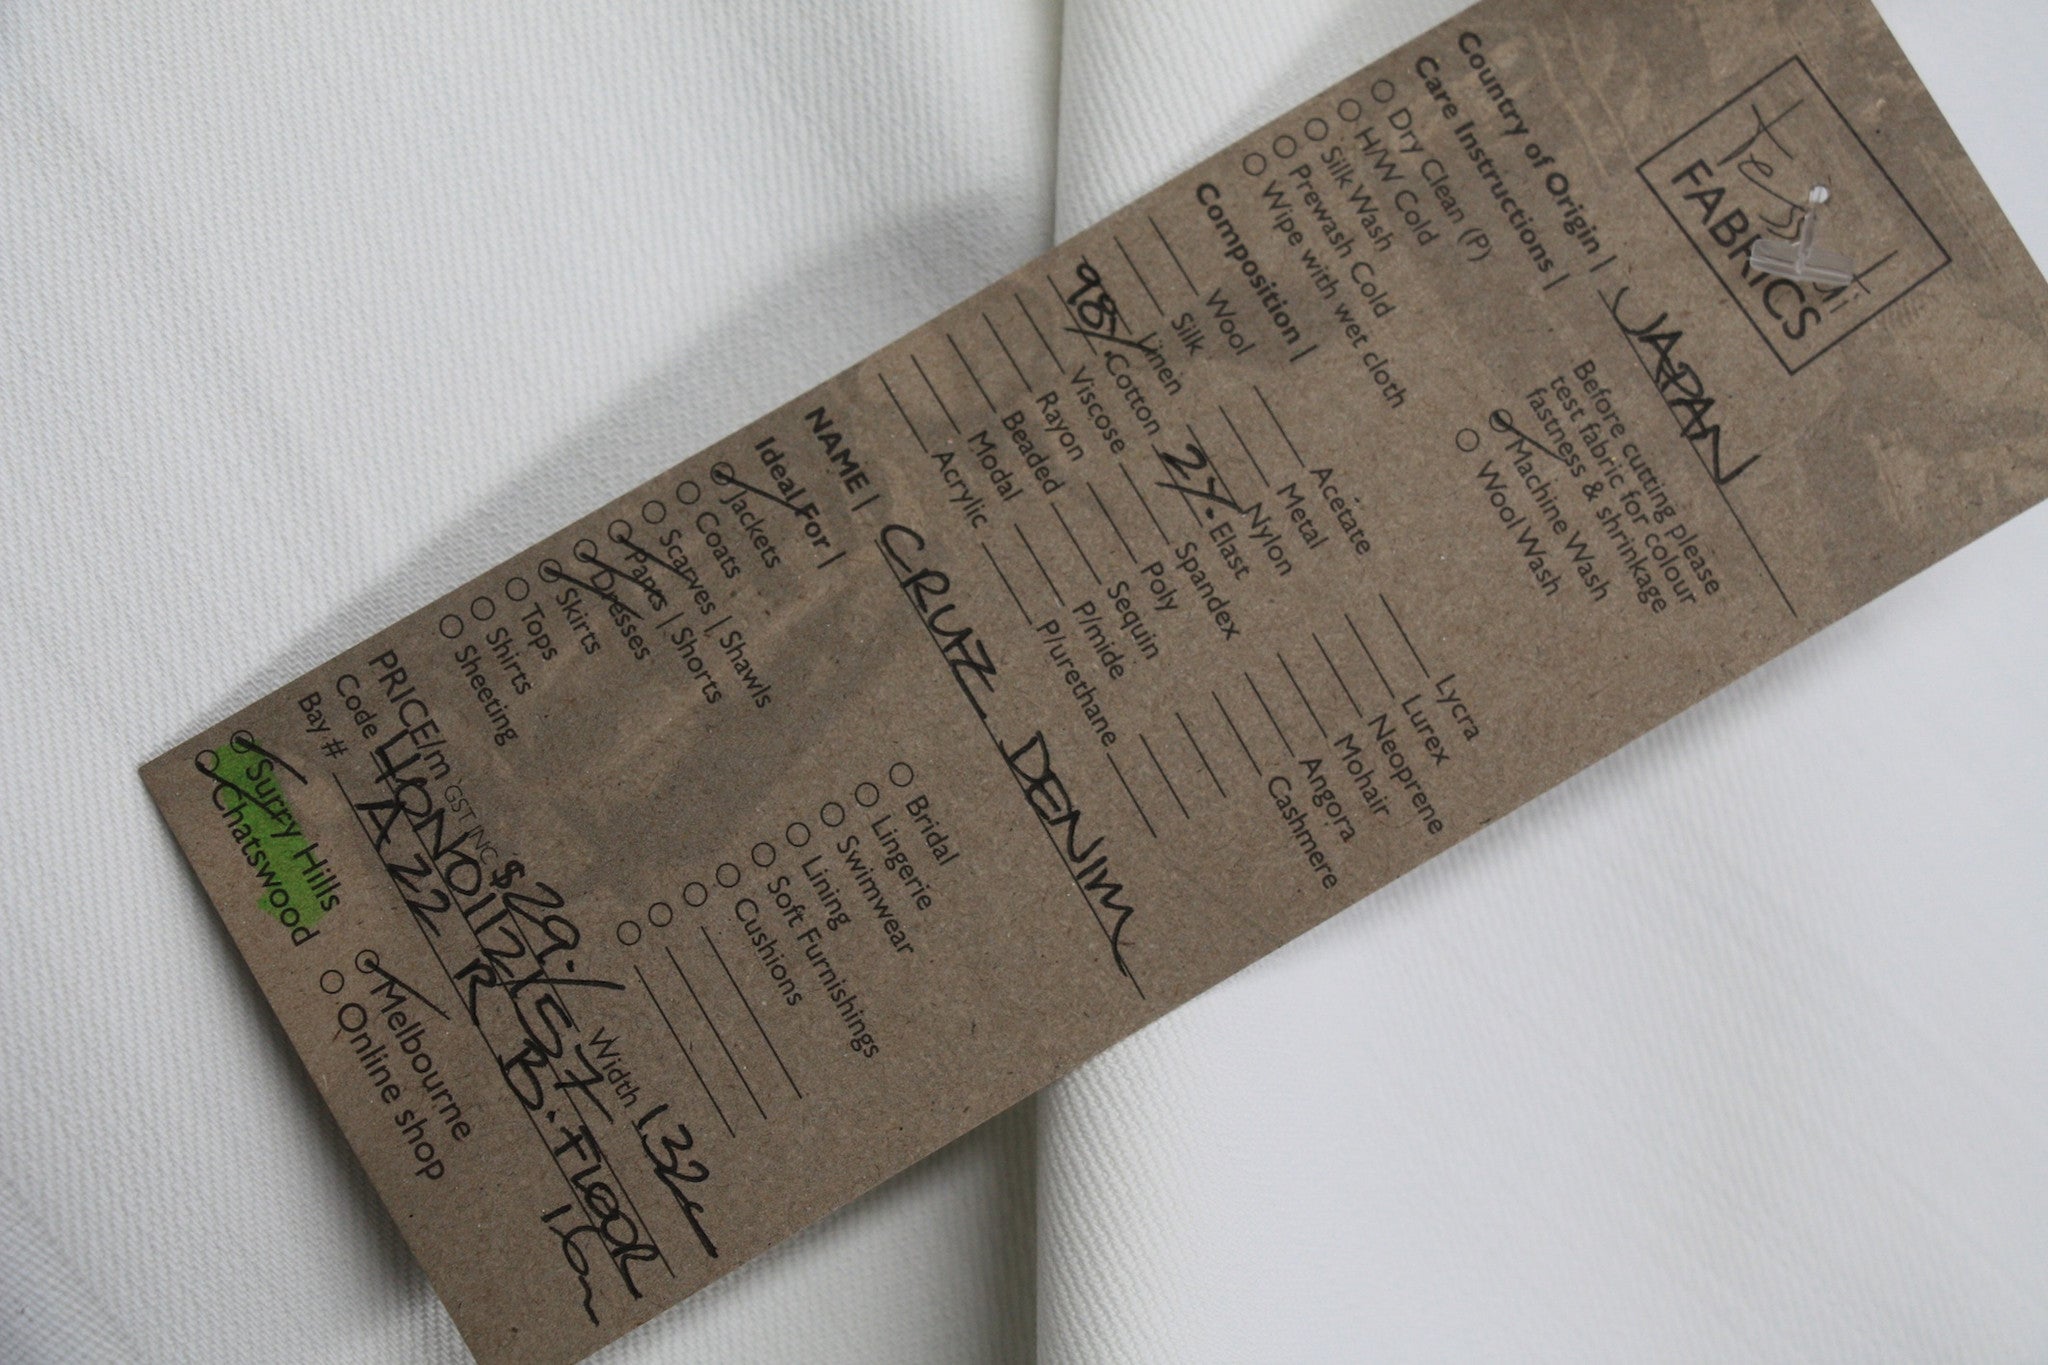 Tessuti
FABRICS
Country of Origin | JAPAN
Care Instructions |
Before cutting please
test fabric for colour
fastness & shrinkage
Dry Clean (P)
H/W Cold
Silk Wash
Prewash Cold
Wipe with wet cloth
Machine Wash
Wool Wash
Composition |
Wool
Silk
Linen
98% Cotton
Viscose
Rayon
Beaded
Modal
Acrylic
Acetate
Metal
Nylon
2% Elast
Spandex
Poly
Sequin
P/mide
P/urethane
Lycra
Lurex
Neoprene
Mohair
Angora
Cashmere
NAME | CRUZ DENIM
Ideal For |
Jackets
Coats
Scarves | Shawls
Pants | Shorts
Dresses
Skirts
Tops
Shirts
Sheeting
Bridal
Lingerie
Swimwear
Lining
Soft Furnishings
Cushions
PRICE/m GST INC $29. Width 132c
Code
Bay # A22 R B.FLOOR
1.6m
Surry Hills
Chatswood
Melbourne
Online shop